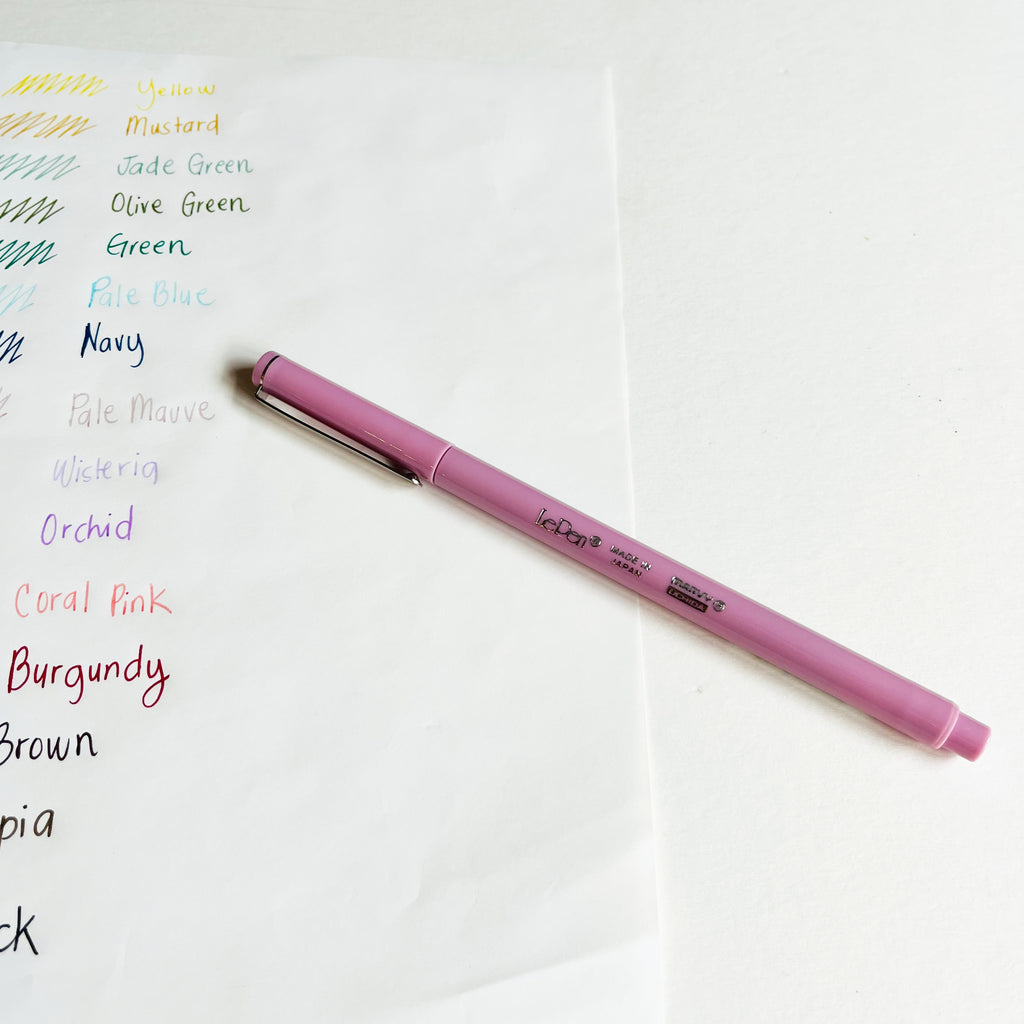 Yellow
Mustard
Jade Green
Olive Green
Green
Pale Blue
Navy
Pale Mauve
Wisteria
Orchid
Coral Pink
Burgundy
Brown
pia
ck
LePen®
MADE IN
JAPAN
MARVY®
UCHIDA